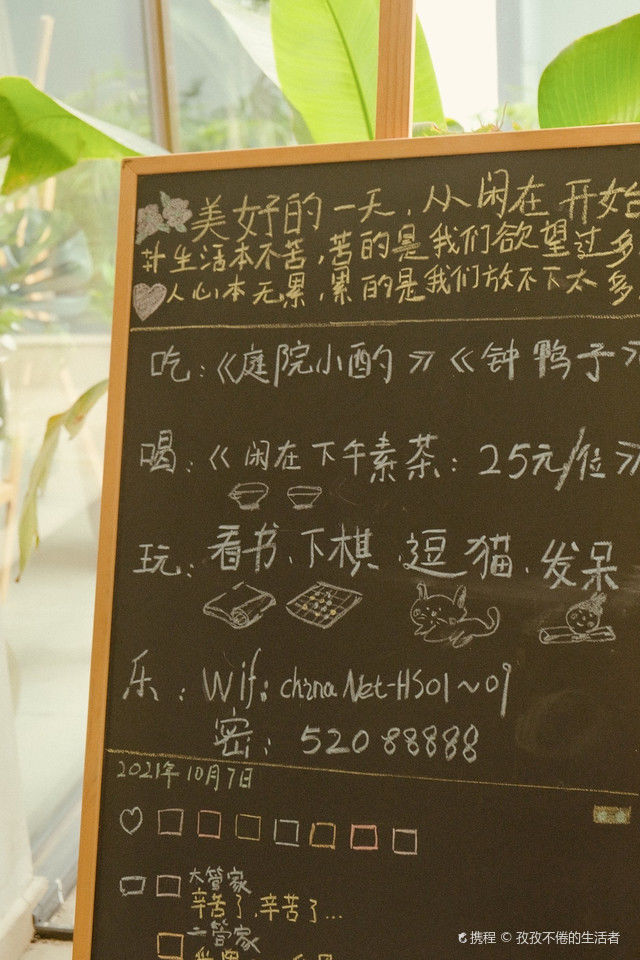 美好的一天，从闲在开始
生活本不苦，苦的是我们欲望过多
人心本无累，累的是我们放不下太多
吃：《庭院小酌》《钟鸭子》
喝：《闲在下午素茶：25元/位》
玩：看书、下棋、逗猫、发呆
乐：Wifi：chinaNet-HS01~09
密：52088888
2021年10月7日
大管家
辛苦了，辛苦了...
二管家
携程 © 孜孜不倦的生活者